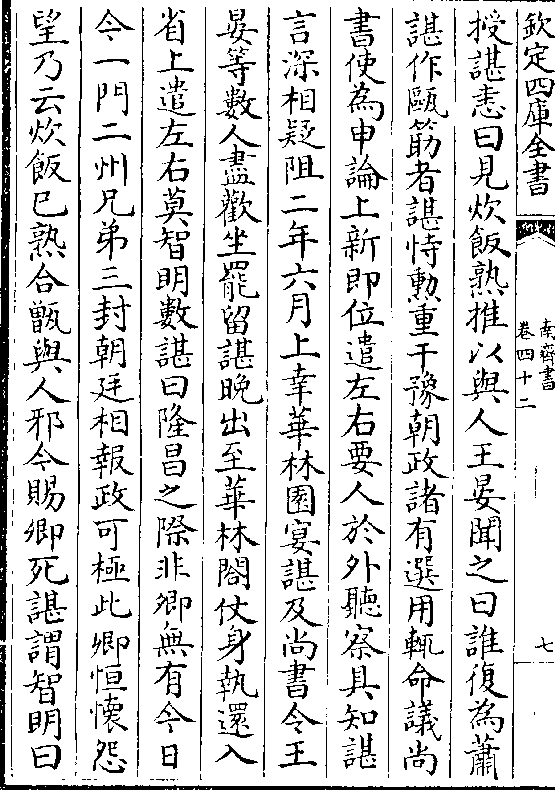 欽定四庫全書
南齊書
卷四十二
七
授諶恚曰見炊飯熟推以與人王晏聞之曰誰復為蕭
諶作甌筯者諶恃勲重干豫朝政諸有選用輒命議尚
書使為申論上新即位遣左右要人於外聽察具知諶
言深相疑阻二年六月上幸華林園宴諶及尚書令王
晏等數人盡歡坐罷留諶晚出至華林閣仗身執還入
省上遣左右莫智明數諶曰隆昌之際非卿無有今日
今一門二州兄弟三封朝廷相報政可極此卿恒懷怨
望乃云炊飯巳熟合甑與人邪今賜卿死諶謂智明曰